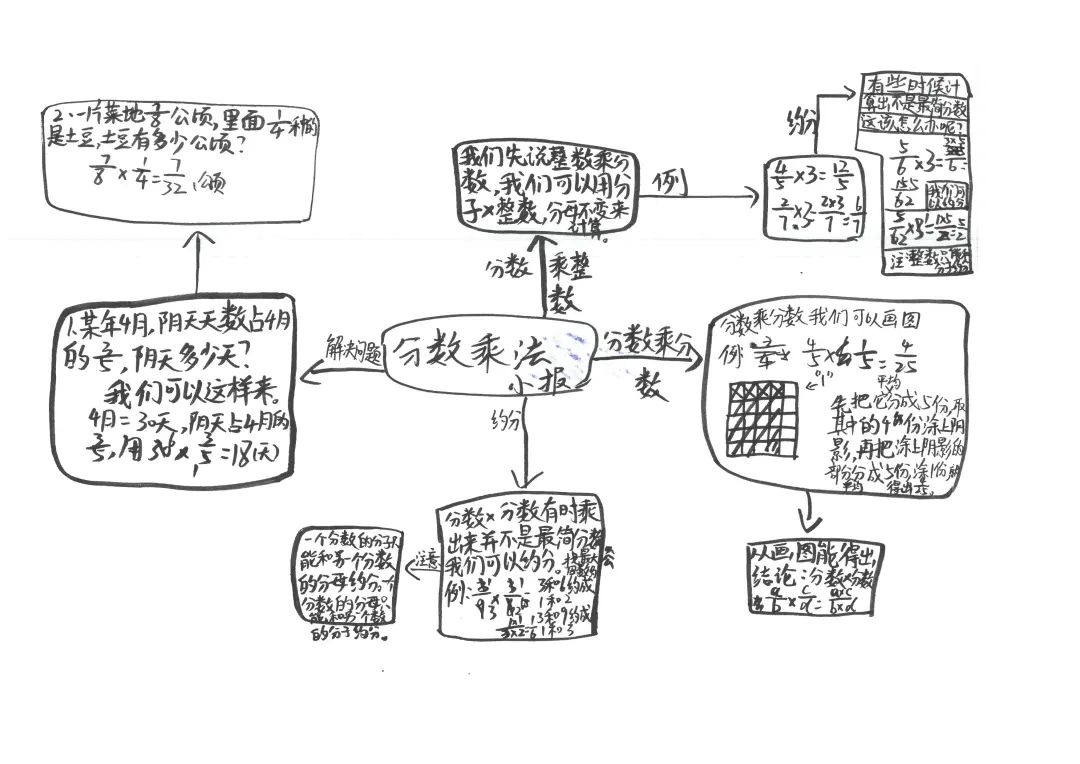 分数乘法
小报
分数乘整
数
我们先说整数乘分
数,我们可以用分
子×整数,分母不变来
计算。
例
4/5×3=12/5
2/7×3=2×3/7=6/7
约分
有些时候计
算出不是最简分数
这该怎么办呢?
5/6×3=
注:整数只能和
分数乘分
数
分数乘分数我们可以画图
例
=4/25
"1"
平均
先把它分成5份,取
其中的4份涂上阴
影,再把涂上阴影的
部分分成5份,涂1份
平均
得出
从画图能得出
结论:分数×分数
a/b×c/d=a×c/b×d
约分
分数×分数有时乘
出来并不是最简分数
我们可以约分。
例:
3和6约成
1和2
3和9约成
1和3
注意
一个分数的分子只
能和另一个分数
的分母约分。一个
分数的分母只
能和另一个数
的分子约分。
解决问题
1.某年4月,阴天天数占4月
的3/5,阴天多少天?
我们可以这样来。
4月=30天,阴天占4月的
3/5,用
×3/5=18(天)
2.一片菜地7/8公顷,里面1/4种的
是土豆,土豆有多少公顷?
7/8×1/4=7/32公顷